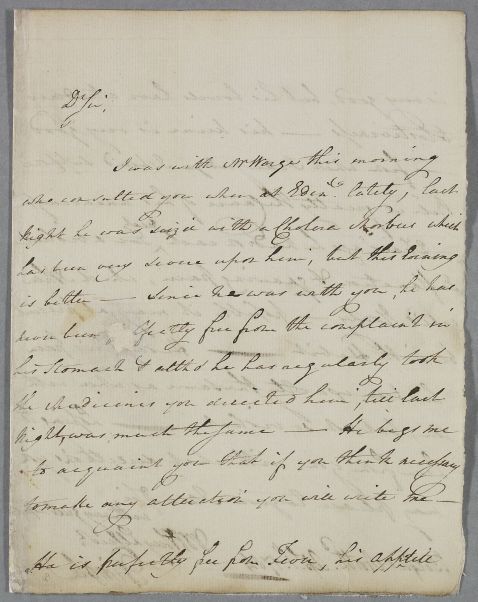 Dr Sir,
I was with Mr Warge this morning
who consulted you when at Edinr. lately, last
Night he was seized with a Cholera Morbus which
has been very severe upon him, but this Evining
is better — Since he was with you, he has
never been perfectly free from the complaint in
his Stomach & altho' he has regularly took
the Medicines you directed him, till last
Night, was much the same — He begs me
to acquaint you that if you think necessary
to make any alteration you will write me —
He is perfectly free from Fever, his appetite